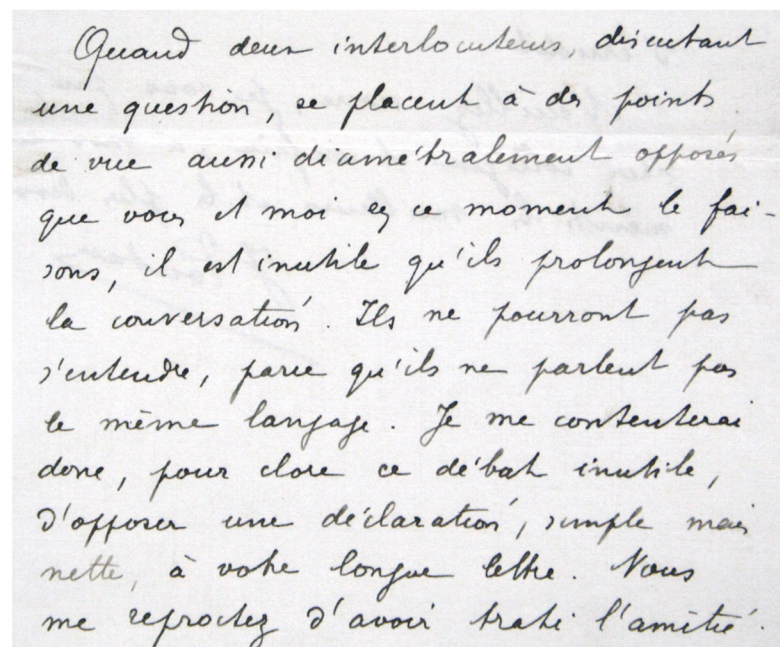 Quand deux interlocuteurs, discutant
une question, se placent à des points
de vue aussi diamétralement opposés
que vous et moi en ce moment le fai-
sons, il est inutile qu'ils prolongent
la conversation. Ils ne pourront pas
s'entendre, parce qu'ils ne parlent pas
le même langage. Je me contenterai
donc, pour clore ce débat inutile,
d'opposer une déclaration, simple mais
nette, à votre longue lettre. Vous
me reprochez d'avoir trahi l'amitié.